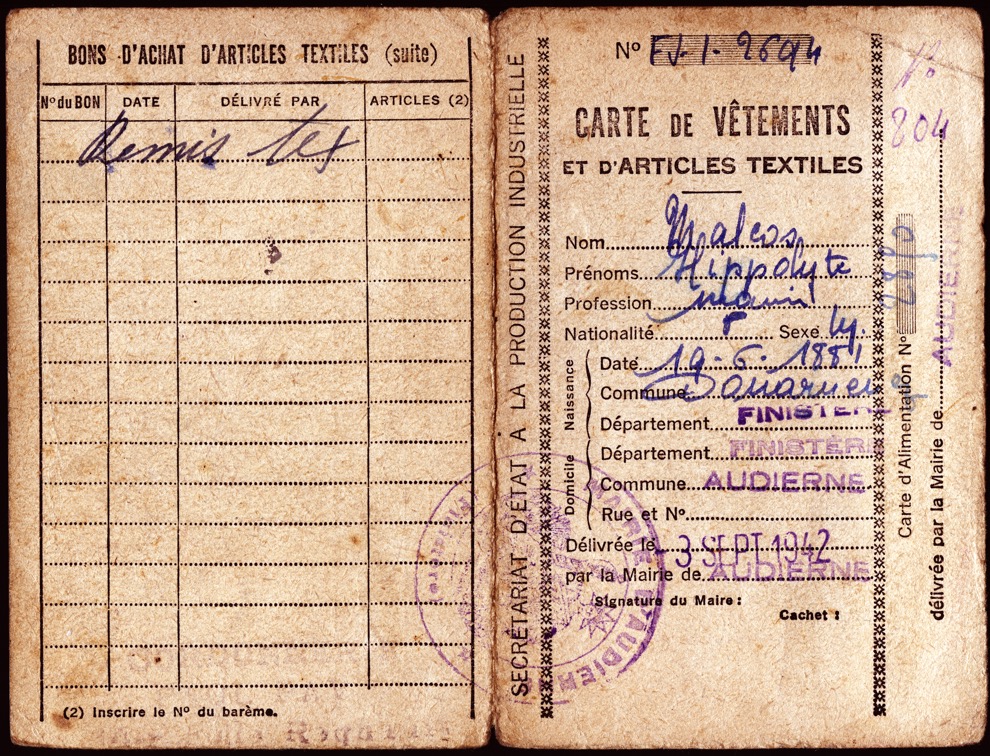 BONS D'ACHAT D'ARTICLES TEXTILES (suite)
N° du BON DATE DÉLIVRÉ PAR ARTICLES (2)
Remis
(2) Inscrire le N° du barème.
SECRÉTARIAT D'ÉTAT A LA PRODUCTION INDUSTRIELLE
MAIRIE D'AUDIERNE
N° FJ-1-2694
CARTE DE VÊTEMENTS
ET D'ARTICLES TEXTILES
Nom Malcos
Prénoms Hippolyte
Profession marin
Nationalité Sexe
Naissance
Date 19-6-1881
Commune Douarnenez
Département FINISTÈRE
Domicile
Département FINISTÈRE
Commune AUDIERNE
Rue et N°
Délivrée le 3 SEPT 1942
par la Mairie de AUDIERNE
Signature du Maire :
Cachet :
Carte d'Alimentation N°
délivrée par la Mairie de AUDIERNE
804